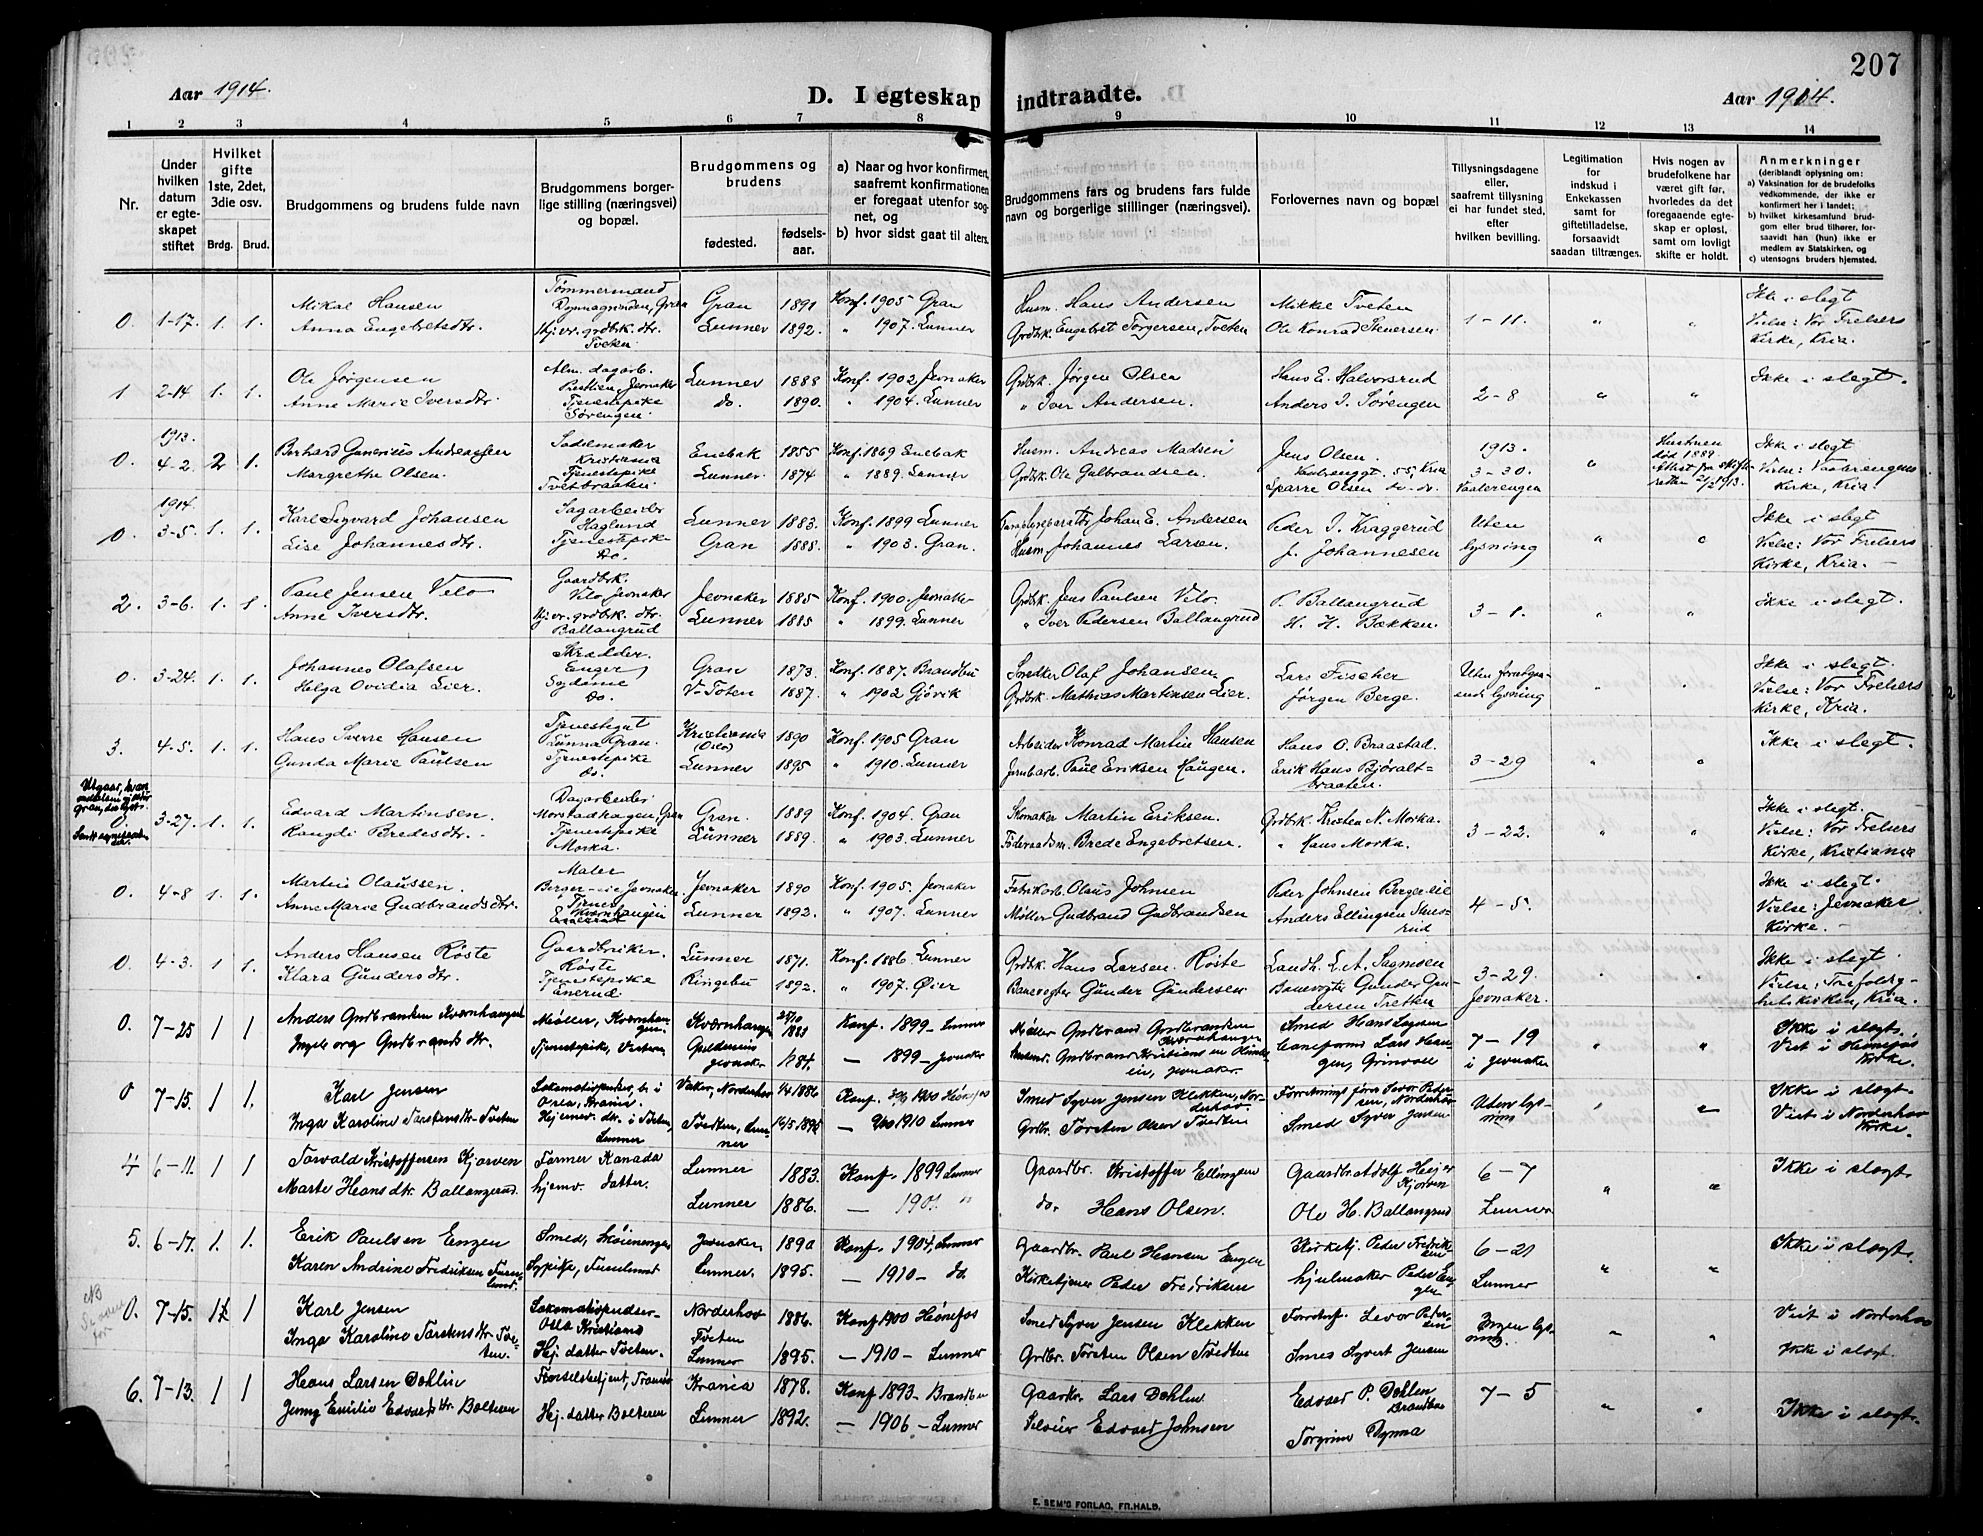 207
Aar 1914.
D. I egteskap indtraadte.
Aar 1914.
1 2 3 4 5 6 7 8 9 10 11 12 13 14
Nr.
Under hvilken datum er egteskapet stiftet
Hvilket gifte 1ste, 2det, 3die osv.
Brdg. Brud.
Brudgommens og brudens fulde navn
Brudgommens borgerlige stilling (næringsvei) og bopæl.
Brudgommens og brudens
fødested.
fødselsaar.
a) Naar og hvor konfirmert, saafremt konfirmationen er foregaat utenfor sognet, og
b) hvor sidst gaat til alters.
Brudgommens fars og brudens fars fulde navn og borgerlige stillinger (næringsvei).
Forlovernes navn og bopæl
Tillysningsdagene eller, saafremt tillysning ei har fundet sted, efter hvilken bevilling.
Legitimation for indskud i Enkekassen samt for giftetilladelse, forsaavidt saadan tiltrænges.
Hvis nogen av brudefolkene har været gift før, hvorledes da det foregaaende egteskap er opløst, samt om lovligt skifte er holdt.
Anmerkninger (deriblandt oplysning om:
a) Vaksination for de brudefolks vedkommende, der ikke er konfirmert her i landet;
b) hvilket kirkesamfund brudgom eller brud tilhører, forsaavidt han (hun) ikke er medlem av Statskirken, og
c) utensogns bruders hjemsted.
0. 1-17. 1. 1. Mikal Hansen Tømmermand Gran 1891 Konf. 1905 Gran Husm. Hans Andersen Mikkel Tveten 1-11. " " Ikke i slegt
Anna Engebretsdtr. Hj.v. grdbk. dtr. Tveten Lunner 1892. " 1907. Lunner Grdbk. Engebret Torgersen, Tveten Ole Konrad Stenersen. Vielse: Vor Frelsers Kirke, Kria.
1 2-14 1. 1. Ole Jørgensen Alm. dagarb. Jevnaker Lunner 1888 Konf. 1902 Jevnaker Grdbk. Jørgen Olsen Hans E. Halvorsrud 2-8 " " Ikke i slegt.
Anne Marie Iversdtr. Tjenestepike Sørengen. do. 1890. " 1904. Lunner " Iver Andersen. Anders I. Sørengen
1913.
0. 4-2. 2 1. Berhard Andreassen Sadelmaker Kristiania Enebak 1855 Konf. 1869 Enebak Husm. Andreas Madsen Jens Olsen. 1913. Hustruen død 1889. Ikke i slegt
Margrethe Olsen. Tjenestepike Tvetbraaten. Lunner 1874 " 1889. Lunner Grdbk. Ole Gulbrandsen Sparre Olsen do- do. 3-30. Vaalerengen Attest fra skifteretten 21/2 1913. Vielse: Vaalerengens Kirke, Kria.
1914
0. 3-5. 1. 1. Karl Sigvard Johansen Sagarbeider Haglund Lunner 1883. Konf. 1899 Lunner Johan E. Andersen Peder I. Kraggerud Uten lysning " " Ikke i slegt
Lise Johannesdtr. Tjenestepike Do. Gran 1888. " 1903. Gran. Husm. Johannes Larsen. J. Johannesen Vielse: Vor Frelsers Kirke, Kria.
2. 3-6. 1. 1. Paul Jensen Velo Gaardbrk. Velo Jevnaker Jevnaker 1885 Konf. 1900. Jevnaker Grdbk. Jens Paulsen Velo. P. Ballangrud 3-1. " " Ikke i slegt.
Anne Iversdtr. Hj.v. grdbrk. dtr. Ballangrud Lunner 1885 " 1899. Lunner " Iver Pedersen Ballangrud H. H. Bakken.
0. 3-24. 1. 1. Johannes Olafsen Skrædder. Enger Gran 1873. Konf. 1887. Brandbu Olaf Johansen Lars Fischer Uten lysning " " Ikke i slegt.
Helga Ovidia Lier. Sydame Do. V-Toten 1887. " 1902 Gjøvik Grdbk. Mathias Martinsen Lier. Jørgen Berge. Vielse: Vor Frelsers Kirke, Kria.
3. 4-5. 1. 1. Hans Sverre Hansen Tjenestegut Lunna Gran. Kristiania (Oslo) 1890 Konf. 1905 Gran Arbeider Konrad Martin Hansen Hans O. Braastad. 3-29 " " Ikke i slegt.
Gunda Marie Paulsen Tjenestepike Do. Lunner 1895 " 1910. Lunner Jernbarb. Paul Eriksen Haugen. Erik Hans Bjøraltbraaten.
0 3-27. 1. 1. Edvard Martinsen. Dagarbeider Morstadhagen, Gran Gran. 1889 Konf. 1904. Gran Skomaker Martin Eriksen. Grdbrk. Kristen N. Morka. 3-22. " " Ikke i slegt.
Rangdi Bredesdtr. Tjenestepike Morka. Lunner 1889. " 1903. Lunner Føderaadsm. Brede Engebretsen. " Hans Morka. Vielse: Vor Frelsers Kirke, Kristiania
0. 4-8 1. 1. Martin Olaussen. Maler Jevnaker. Jevnaker 1890 Konf. 1905. Jevnaker Fabrikarb. Olaus Johnsen Peder Johnsen Berger-eie 4-5. " " Ikke i slegt
Anne Marie Gudbrandsdtr. Kværnhaugen Lunner 1892. " 1907. Lunner Møller Gudbrand Gudbrandsen Anders Ellingsen Vielse: Jevnaker Kirke.
0. 4-3. 1 1. Anders Hansen Røste Gaardbruker. Røste Lunner 1871. Konf. 1886. Lunner Grdbk. Hans Larsen Røste Landh. L. A. Sagmoen 3-29. " " Ikke i slegt
Klara Gundersdtr. Tjenestepike Ringebu 1892. " 1907. Øier Banevogter Gunder Gundersen Banevogter Gunder Gundersen Tretten Jevnaker. Vielse: Trefoldighetskirken, Kria.
0. 7-25 1 1 Anders Gudbrandsen Kværnhaugen Møller, Kværnhaugen. Kværnhaugen Konf. 1899 - Lunner Møller Gudbrand Gudbrandsen Kværnhaugen Smed Hans 7-19 " " Ikke i slegt.
Ingeborg Gudbrandsdtr. Tjenestepike, jevnaker 1884. - 1899 - jevnaker jevnaker. i jevnaker Viet i Hønefos Kirke.
0 7-15. 1 1. Karl Jensen Norderhov 1886 Konf. 1900 Hønefos Smed Syver Jensen Klekken, Norderhov. Uten lysning " " Ikke i slegt
Inga Karoline Torstensdtr. Tveten Hjemmev. dtr. i Tveten, Lunner Tvedten, Lunner 1895 - 1910 Lunner Grdbr. Torsten Olsen Tvedten Smed Syver Jensen Viet i Norderhov Kirke.
4 6-11. 1 1 Torvald Kristoffersen Kjorven Farmer Kanada Lunner 1883. Konf. 1899 Lunner Gaardbr. Kristoffer Ellingsen Gaardbr. Adolf Kjorven 6-7 " " Ikke i slegt.
Marte Hansdtr. Ballangrud. hjemv. datter. Lunner 1886. - 1901 " do. Hans Olsen. Ole H. Ballangrud Lunner
5. 6-17. 1. 1. Erik Paulsen Engen Smed, jevnaker. 1890 Konf. 1904, Lunner Gaardbr. Paul Hansen Engen Kirketj. Peder Fredriksen 6-21 " " Ikke i slegt.
Karen Andrine Fredriksen Furulund. Sypike, Furulund Lunner. 1895. - 1910 - do. Kirketjener Peder Fredriksen hjulmaker Peder Engen Lunner
0. 7-15. 1 1 Karl Jensen Lokomotivpudser Oslo Kristiania Norderhov 1886. Konf. 1900 Hønefos Smed Syver Jensen Klekken Pedersen Ingen lysning. " " Viet i Norderhov
Inga Karoline Torstensdtr. Tveten. Hj. datter Tveten. Tveten Lunner 1895. - 1910 - Lunner Grdbr. Torsten Olsen Tvedten Smed Syvert Jensen Ikke i slegt.
6. 7-13. 1 1 Hans Larsen Dehlin Krania 1878. Konf 1893 - Brandbu Lars Dehlin Edvard P. Dehlen Brandbu 7-5 " " Ikke i slegt.
Jenny Emilie Edvardsdtr. Bolteren Hj. datter Bolteren Lunner 1892. - 1906 - Lunner Edvard Johnsen Torgrim Dynna
E. SEM'S FORLAG, FR.HALD.